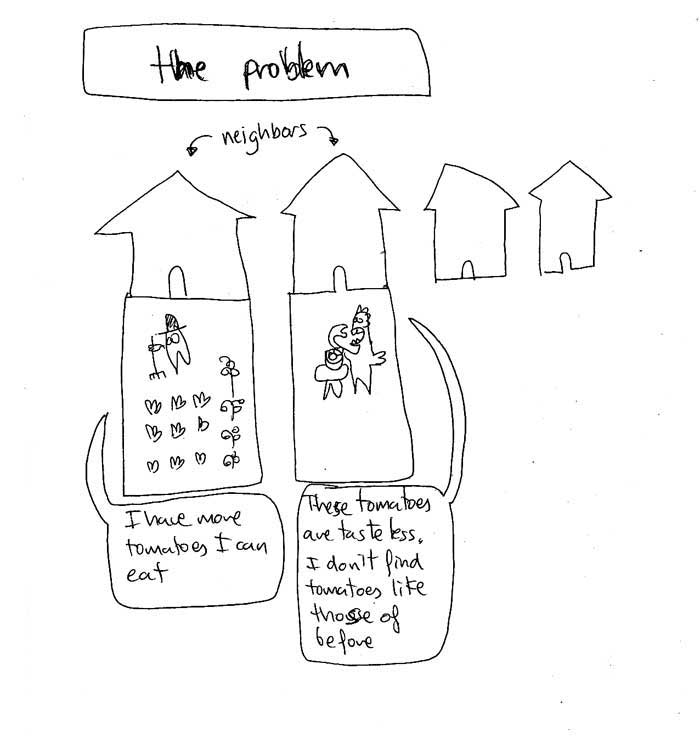 the problem
neighbors
I have more
tomatoes I can
eat
These tomatoes
are taste less.
I don't find
tomatoes like
those of
before